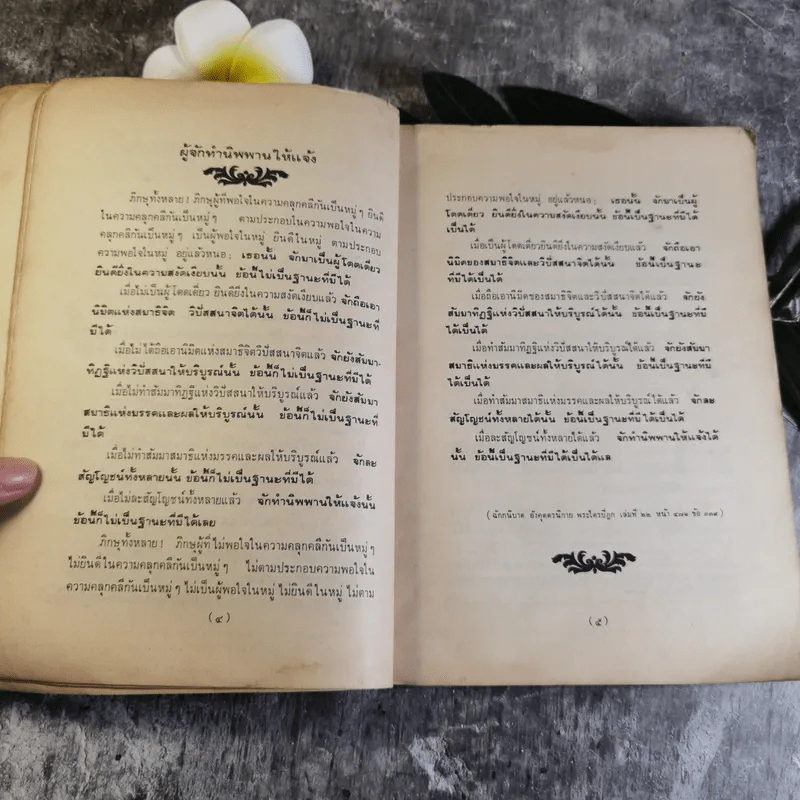 ผู้จักทำนิพพานให้แจ้ง
ภิกษุทั้งหลาย! ภิกษุผู้ที่พอใจในความคลุกคลีกันเป็นหมู่ๆ ยินดี
ในความคลุกคลีกันเป็นหมู่ๆ ตามประกอบในความพอใจในความ
คลุกคลีกันเป็นหมู่ๆ เป็นผู้พอใจในหมู่ ยินดีในหมู่ ตามประกอบ
ความพอใจในหมู่ อยู่แล้วหนอ; เธอนั้น จักมาเป็นผู้โดดเดี่ยว
ยินดียิ่งในความสงัดเงียบนั้น ย้อนี้ไม่เป็นฐานะที่มีได้
เมื่อไม่เป็นผู้โดดเดี่ยว ยินดียิ่งในความสงัดเงียบแล้ว จักถือเอา
นิมิตแห่งสมาธิจิต วิปัสสนาจิตได้นั้น ย้อนี้ก็ไม่เป็นฐานะที่
มีได้
เมื่อไม่ได้ถือเอานิมิตแห่งสมาธิจิตวิปัสสนาจิตแล้ว จักยังสัมมา-
ทิฏฐิแห่งวิปัสสนาให้บริบูรณ์นั้น ย้อนี้ก็ไม่เป็นฐานะที่มีได้
เมื่อไม่ทำสัมมาทิฏฐิแห่งวิปัสสนาให้บริบูรณ์แล้ว จักยังสัมมา
สมาธิแห่งมรรคและผลให้บริบูรณ์นั้น ย้อนี้ก็ไม่เป็นฐานะที่
มีได้
เมื่อไม่ทำสัมมาสมาธิแห่งมรรคและผลให้บริบูรณ์แล้ว จักละ
สัญโญชน์ทั้งหลายนั้น ย้อนี้ก็ไม่เป็นฐานะที่มีได้
เมื่อไม่ละสัญโญชน์ทั้งหลายแล้ว จักทำนิพพานให้แจ้งนั้น
ย้อนี้ก็ไม่เป็นฐานะที่มีได้เลย
ภิกษุทั้งหลาย! ภิกษุผู้ที่ไม่พอใจในความคลุกคลีกันเป็นหมู่ๆ
ไม่ยินดีในความคลุกคลีกันเป็นหมู่ๆ ไม่ตามประกอบความพอใจใน
ความคลุกคลีกันเป็นหมู่ๆ ไม่เป็นผู้พอใจในหมู่ ไม่ยินดีในหมู่ ไม่ตาม
(๔)
ประกอบความพอใจในหมู่ อยู่แล้วหนอ; เธอนั้น จักมาเป็นผู้
โดดเดี่ยว ยินดียิ่งในความสงัดเงียบนั้น ย้อนี้เป็นฐานะที่มีได้
เป็นได้
เมื่อเป็นผู้โดดเดี่ยวยินดียิ่งในความสงัดเงียบแล้ว จักถือเอา
นิมิตของสมาธิจิตและวิปัสสนาจิตได้นั้น ย้อนี้เป็นฐานะ
ที่มีได้เป็นได้
เมื่อถือเอานิมิตของสมาธิจิตและวิปัสสนาจิตได้แล้ว จักยัง
สัมมาทิฏฐิแห่งวิปัสสนาให้บริบูรณ์ได้นั้น ย้อนี้เป็นฐานะที่มี
ได้เป็นได้
เมื่อทำสัมมาทิฏฐิแห่งวิปัสสนาให้บริบูรณ์ได้แล้ว จักยังสัมมา
สมาธิแห่งมรรคและผลให้บริบูรณ์ได้นั้น ย้อนี้เป็นฐานะที่มี
ได้เป็นได้
เมื่อทำสัมมาสมาธิแห่งมรรคและผลให้บริบูรณ์ได้แล้ว จักละ
สัญโญชน์ทั้งหลายได้นั้น ย้อนี้เป็นฐานะที่มีได้เป็นได้
เมื่อละสัญโญชน์ทั้งหลายได้แล้ว จักทำนิพพานให้แจ้งได้
นั้น ย้อนี้เป็นฐานะที่มีได้เป็นได้แล
(ฉักกนิบาต อังคุตตรนิกาย พระไตรปิฎก เล่มที่ ๒๒ หน้า ข้อ)
(๕)